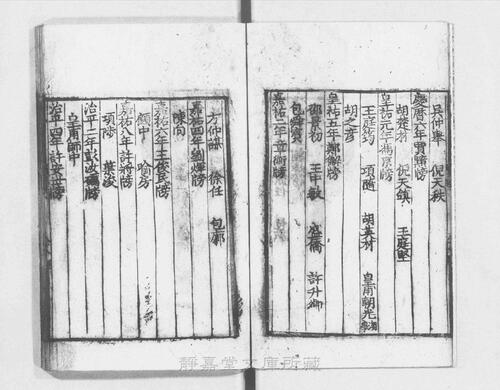 吕仲舉 倪天秩
慶曆六年賈黯榜
胡莊羽 倪天鎮 王庭堅
皇祐元年馮京榜
王庭筠 項隨 胡英材 皇甫朝光
胡之彦
皇祐五年鄭獬榜
邵景初 王中敏 盛僑 許升卿
包
嘉祐二年章衡榜
方仲謀 徐任 包廓
嘉祐四年劉煇榜
陳向
嘉祐六年王俊民榜
顔中 喻房
嘉祐八年許將榜
項隨 葉
治平二年彭汝礪榜
皇甫師中
治平四年許安世榜
靜嘉堂文庫所藏